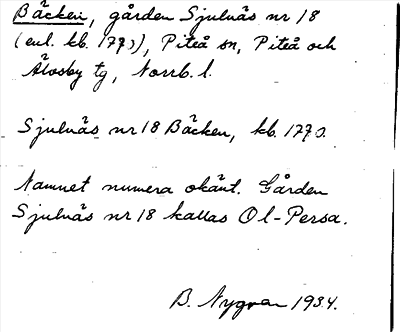 Bäcken, gården Sjulnäs nr 18
(enl. kb. 1770), Piteå sn, Piteå och
Älvsby tg, Norrb. l.
Sjulnäs nr 18 Bäcken, kb. 1770.
Namnet numera okänt. Gården
Sjulnäs nr 18 kallas Ol-Persa.
B. Nygren 1934.